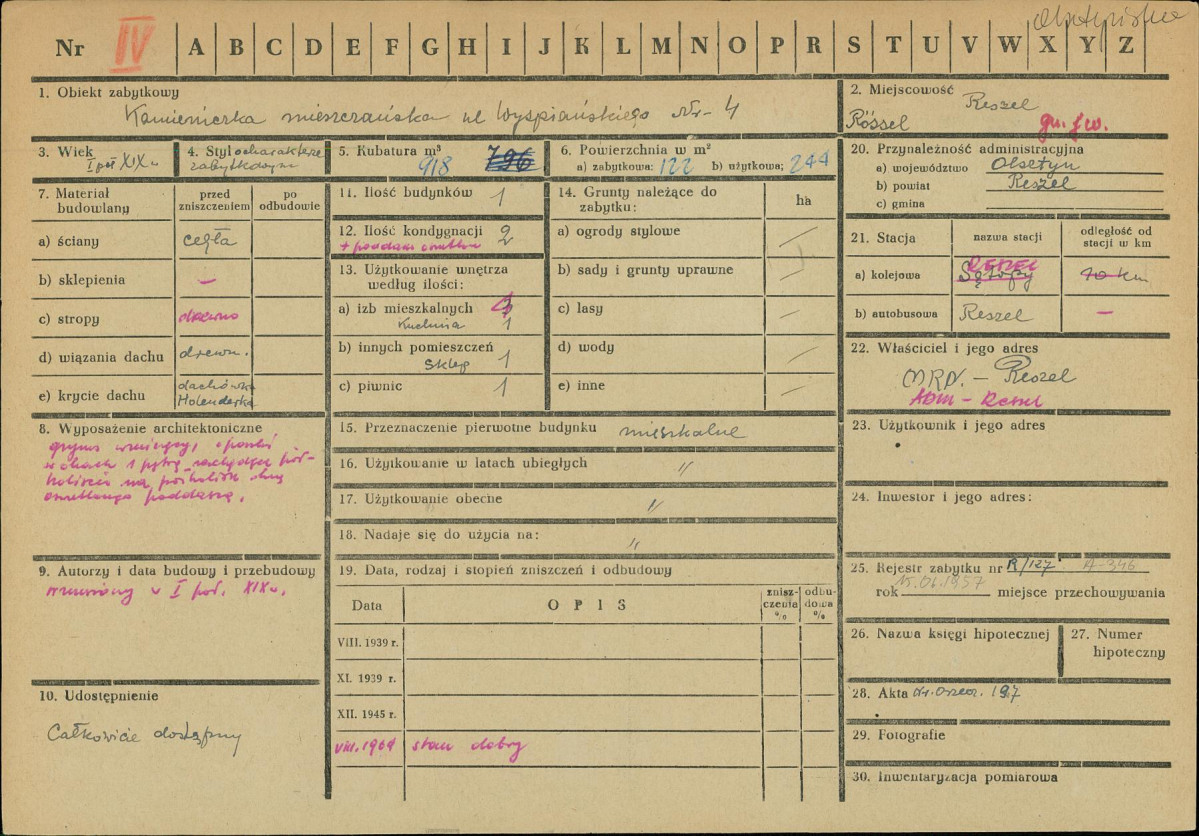 Nr IV A B C D E F G H I J K L M N O P R S T U V W X Y Z
1. Obiekt zabytkowy
Kamieniczka mieszczańska ul Wyspiańskiego Nr- 4
2. Miejscowość
Reszel
Rössel
3. Wiek
I poł XIX w
4. Styl o charakterze
zabytkowym
5. Kubatura m³
918 796
6. Powierzchnia w m²
a) zabytkowa: 122 b) użytkowa; 244
20. Przynależność administracyjna
a) województwo Olsztyn
b) powiat Reszel
c) gmina
7. Materiał
budowlany
przed
zniszczeniem
po
odbudowie
a) ściany cegła
b) sklepienia —
c) stropy drewno
d) wiązania dachu drewn.
e) krycie dachu dachówka
Holenderka
11. Ilość budynków 1
12. Ilość kondygnacji 2
+ poddasze
13. Użytkowanie wnętrza
według ilości:
a) izb mieszkalnych
Kuchnia 1
b) innych pomieszczeń
Sklep 1
c) piwnic 1
14. Grunty należące do
zabytku:
ha
a) ogrody stylowe —
b) sady i grunty uprawne
c) lasy —
d) wody —
e) inne —
21. Stacja
nazwa stacji
odległość od
stacji w km
a) kolejowa RESZEL
Sątopy 10 km
b) autobusowa Reszel —
22. Właściciel i jego adres
MRN. — Reszel
ADM — Reszel
8. Wyposażenie architektoniczne
gzyms wieńczący, opaski
w oknach 1 piętra zachodzące pół-
koliście na półkoliste okna
poddasza.
15. Przeznaczenie pierwotne budynku mieszkalne
16. Użytkowanie w latach ubiegłych "
17. Użytkowanie obecne "
18. Nadaje się do użycia na: "
23. Użytkownik i jego adres
24. Inwestor i jego adres:
9. Autorzy i data budowy i przebudowy
wzniesiony w I poł. XIX w.
19. Data, rodzaj i stopień zniszczeń i odbudowy
Data
OPIS
znisz-
czenia
%
odbu-
dowa
%
VIII. 1939 r.
XI. 1939 r.
XII. 1945 r.
VIII. 1964 stan dobry
25. Rejestr zabytku nr R/127 A-346
15.01.1957
rok miejsce przechowywania
26. Nazwa księgi hipotecznej
27. Numer
hipoteczny
10. Udostępnienie
Całkowicie dostępny
28. Akta
29. Fotografie
30. Inwentaryzacja pomiarowa